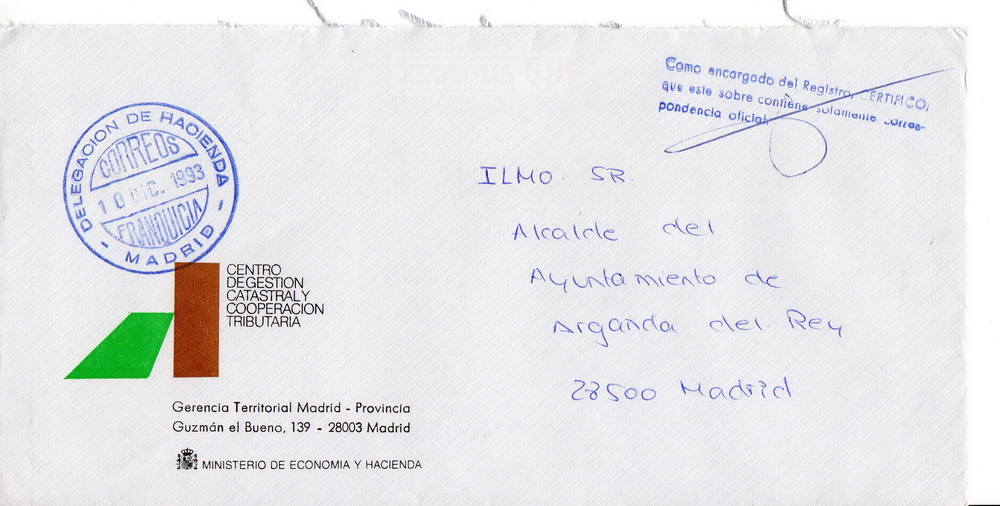 Como encargado del Registro, CERTIFICO,
que este sobre contiene solamente corres-
pondencia oficial.
DELEGACION DE HACIENDA
CORREOS
10 DIC. 1993
FRANQUICIA
- MADRID -
ILMO. SR.
Alcalde del
Ayuntamiento de
Arganda del Rey
28500 Madrid
CENTRO
DE GESTION
CATASTRAL Y
COOPERACION
TRIBUTARIA
Gerencia Territorial Madrid - Provincia
Guzmán el Bueno, 139 - 28003 Madrid
MINISTERIO DE ECONOMIA Y HACIENDA